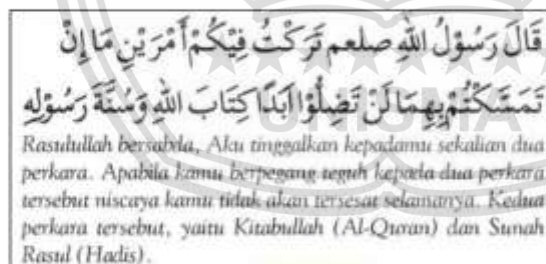 قَالَ رَسُوْلُ اللهِ صلعم تَرَكْتُ فِيْكُمْ أَمْرَيْنِ مَا إِنْ
تَمَسَّكْتُمْ بِهِمَا لَنْ تَضِلُّوْا اَبَدًا كِتَابَ اللهِ وَسُنَّةَ رَسُوْلِهِ
Rasulullah bersabda, Aku tinggalkan kepadamu sekalian dua
perkara. Apabila kamu berpegang teguh kepada dua perkara
tersebut niscaya kamu tidak akan tersesat selamanya. Kedua
perkara tersebut, yaitu Kitabullah (Al-Quran) dan Sunah
Rasul (Hadis).
UNISMA